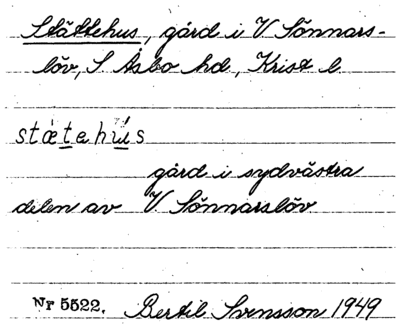 Stättehus, gård i V Sönnars-
löv, S Åsbo hd, Krist l.
stætehús
gård i sydvästra
delen av V. Sönnarslöv
Nr 5522. Bertil Svensson 1949